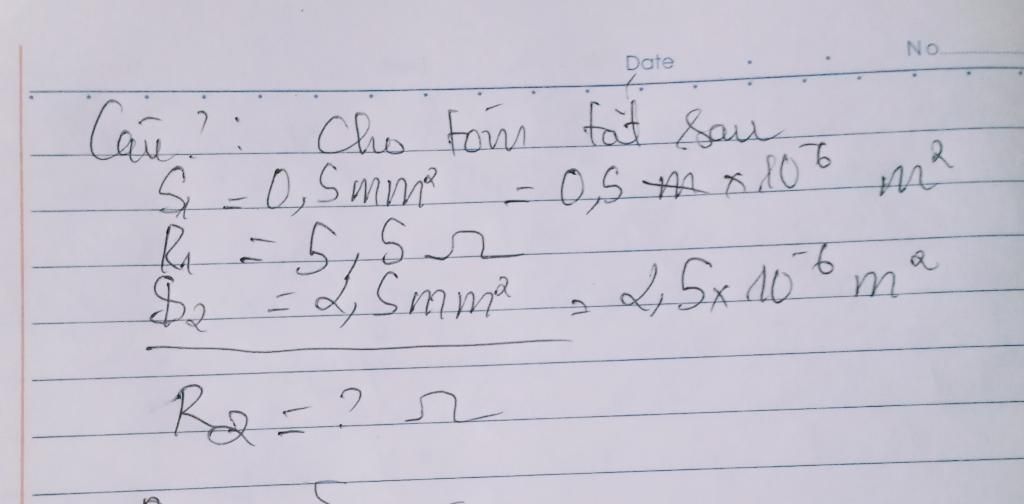 No
Date
Câu ?: Cho tóm tắt sau
S₁ = 0,5mm² = 0,5 m × 10⁻⁶ m²
R₁ = 5,5 Ω
S₂ = 2,5mm² = 2,5 × 10⁻⁶ m²
R₂ = ? Ω